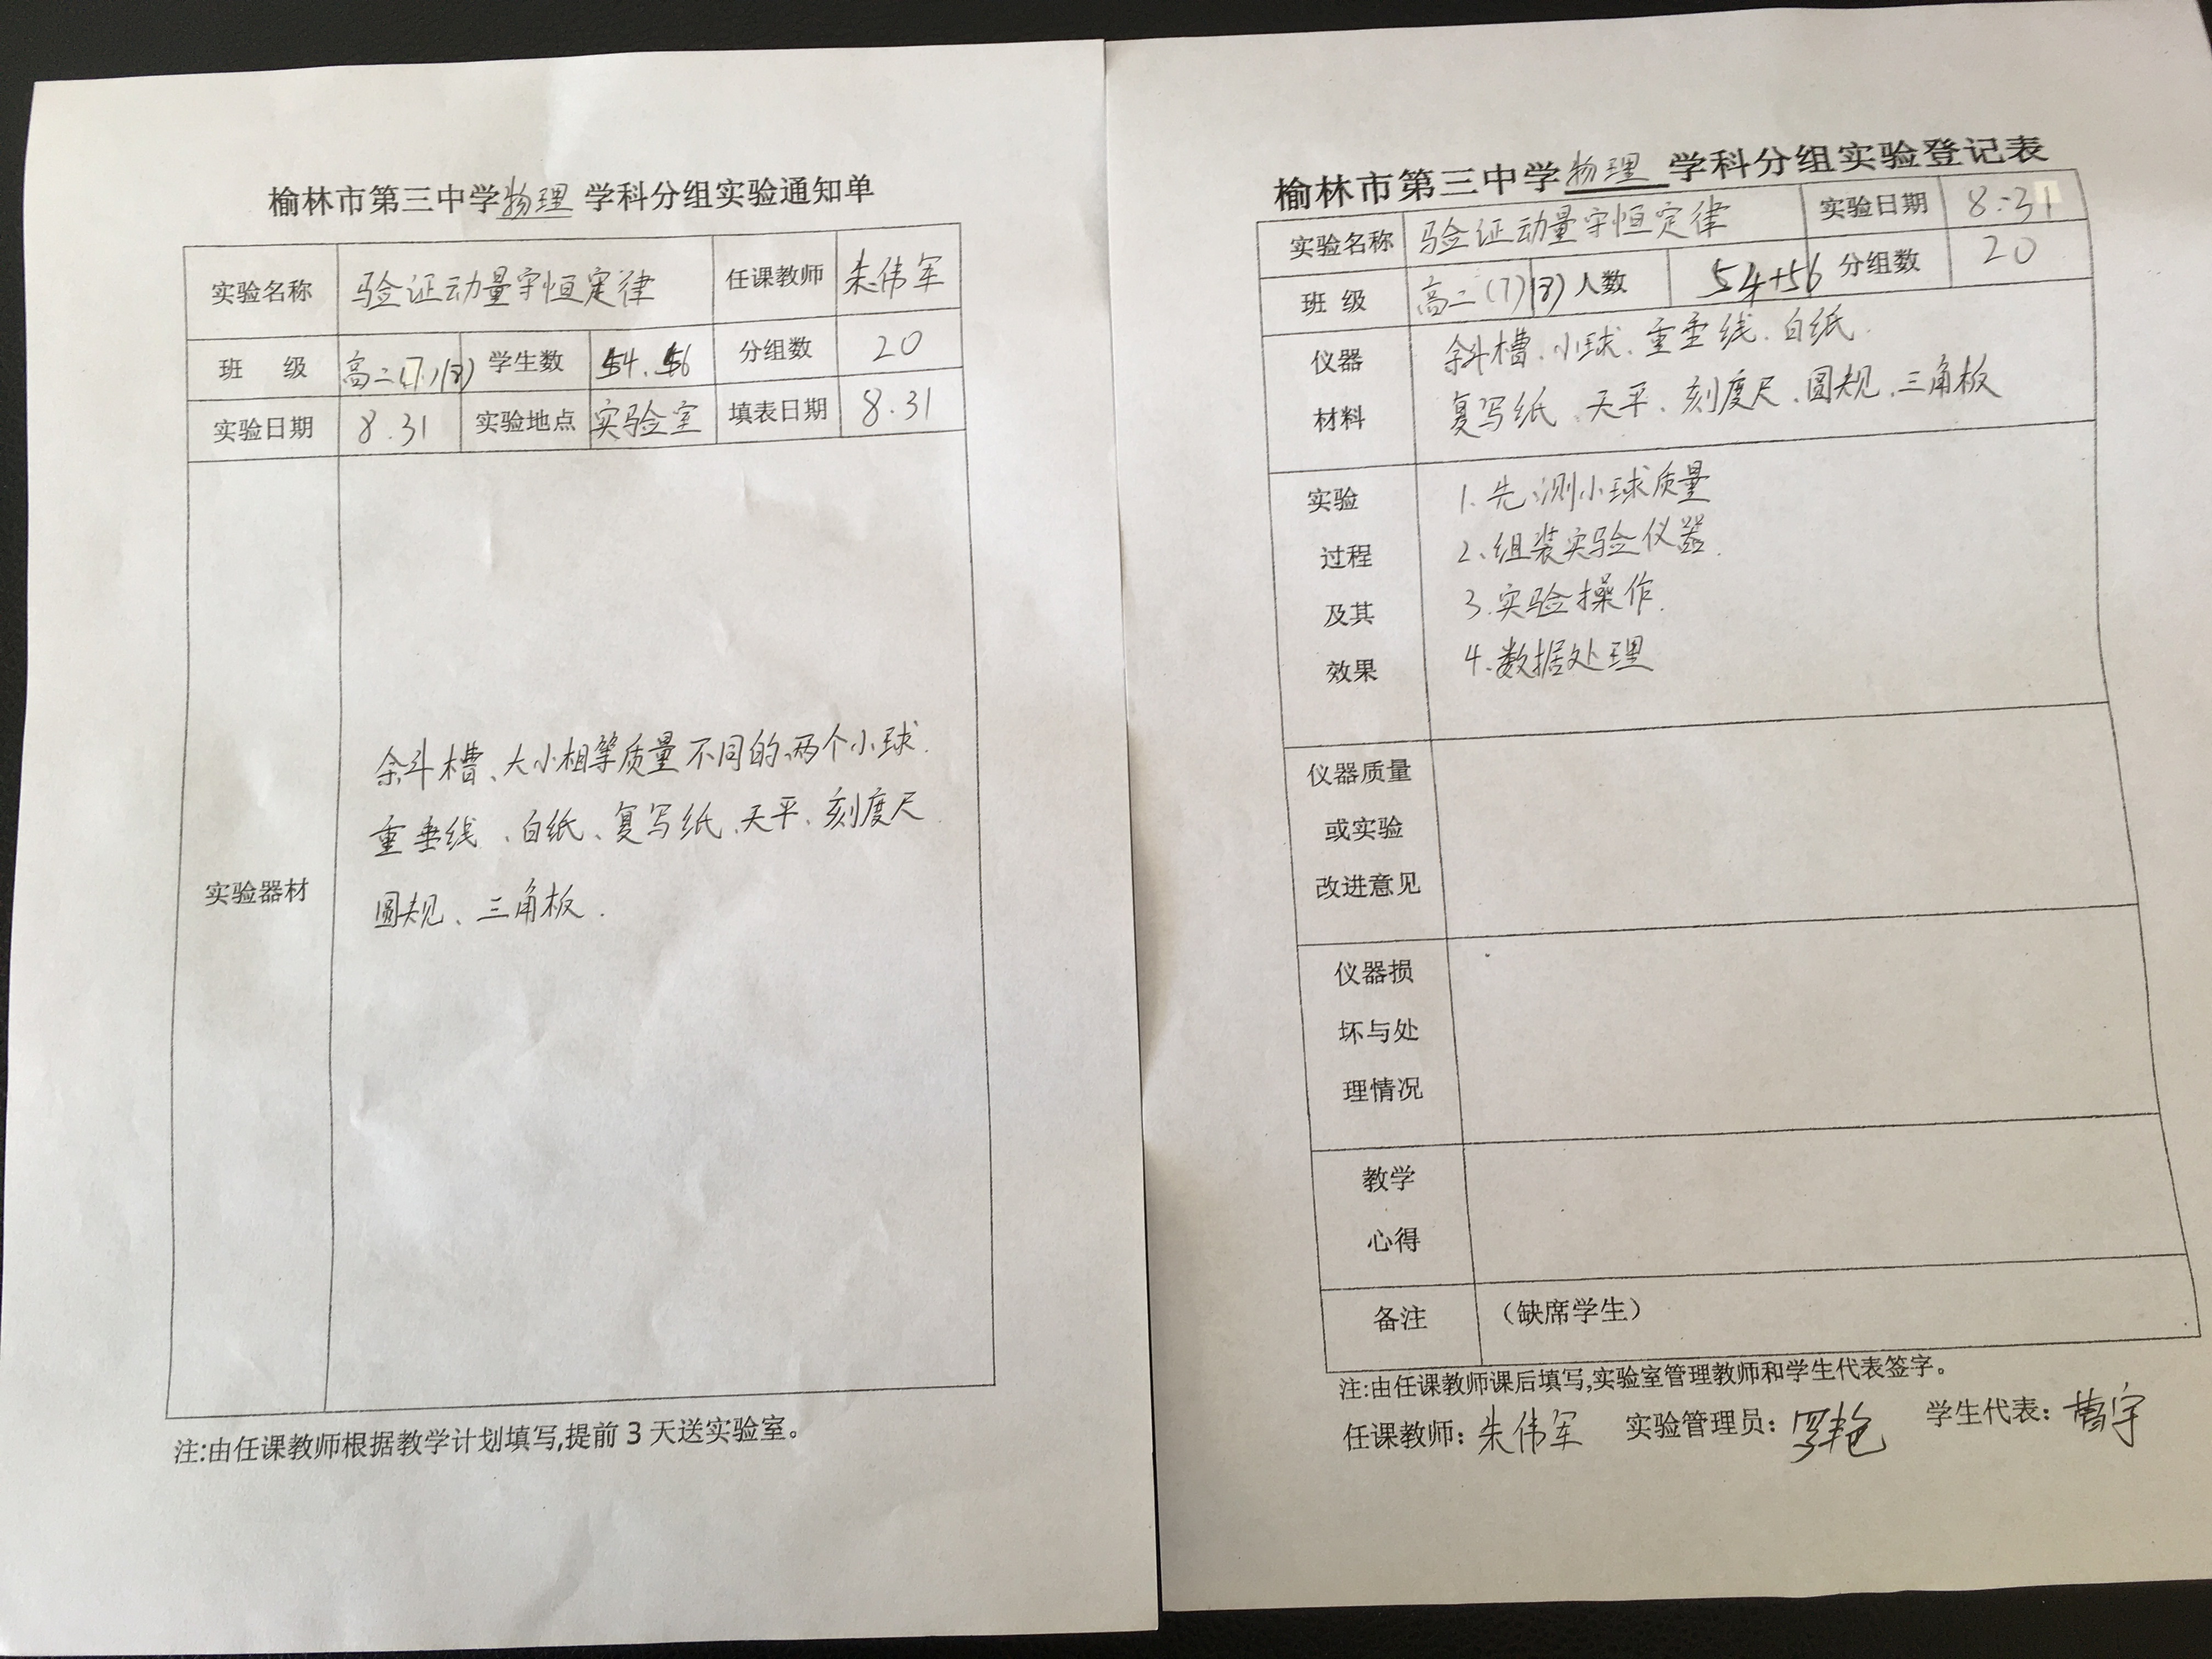 榆林市第三中学物理 学科分组实验通知单
实验名称 验证动量守恒定律 任课教师 朱伟军
班 级 高二(7)(8) 学生数 54.56 分组数 20
实验日期 8.31 实验地点 实验室 填表日期 8.31
斜槽、大小相等质量不同的两个小球.
重垂线、白纸、复写纸、天平、刻度尺
实验器材
圆规、三角板.
注:由任课教师根据教学计划填写,提前3天送实验室。
榆林市第三中学物理 学科分组实验登记表
实验名称 验证动量守恒定律 实验日期 8.31
班 级 高二(7)(8) 人数 54+56 分组数 20
仪器 斜槽、小球、重垂线、白纸.
材料 复写纸、天平、刻度尺、圆规、三角板
实验 1.先测小球质量
过程 2.组装实验仪器.
及其 3.实验操作.
效果 4.数据处理
仪器质量
或实验
改进意见
仪器损
坏与处
理情况
教学
心得
备注 (缺席学生)
注:由任课教师课后填写,实验室管理教师和学生代表签字。
任课教师: 朱伟军 实验管理员: 学生代表: